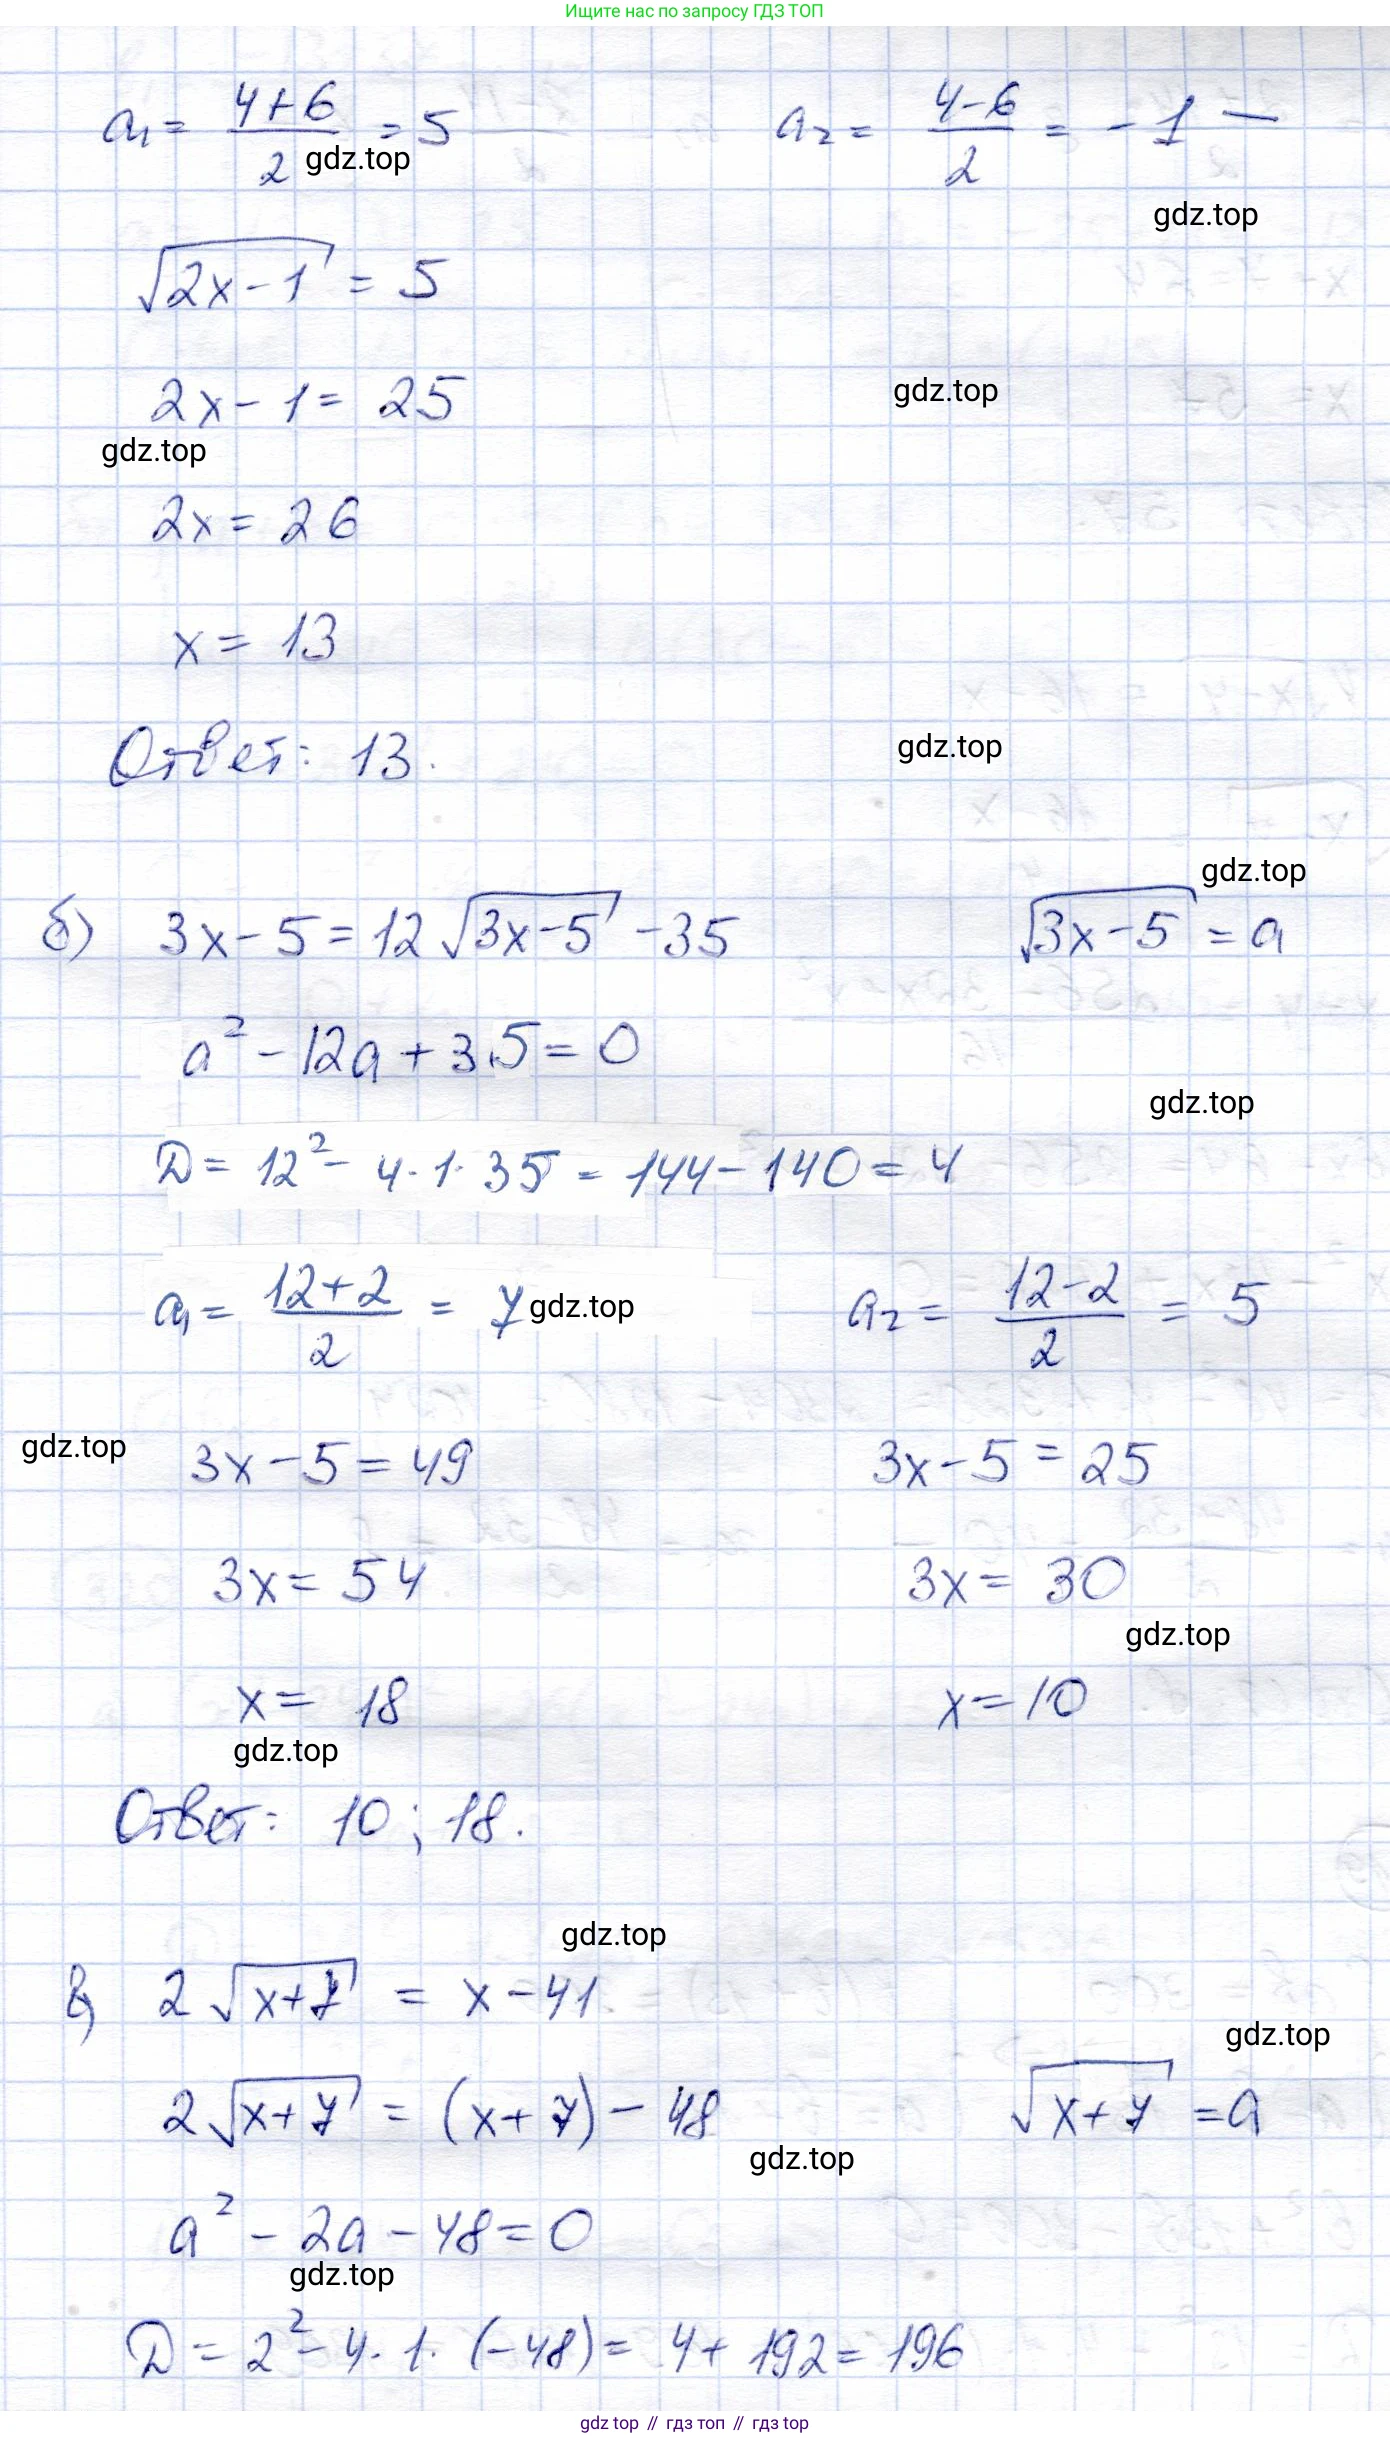 Ищите нас по запросу ГДЗ ТОП
a₁ = (4+6)/2 = 5    a₂ = (4-6)/2 = -1 —
gdz.top
gdz.top
√(2x-1) = 5
2x-1 = 25
gdz.top
gdz.top
2x = 26
x = 13
Ответ: 13.
gdz.top
gdz.top
б) 3x-5 = 12√(3x-5) -35    √(3x-5) = a
a² - 12a + 35 = 0
gdz.top
D = 12² - 4·1·35 = 144 - 140 = 4
a₁ = (12+2)/2 = 7    a₂ = (12-2)/2 = 5
gdz.top
gdz.top
3x-5 = 49    3x-5 = 25
3x = 54    3x = 30
gdz.top
x = 18    x = 10
gdz.top
Ответ: 10; 18.
gdz.top
в) 2√(x+7) = x-41
gdz.top
2√(x+7) = (x+7) - 48    √(x+7) = a
gdz.top
a² - 2a - 48 = 0
gdz.top
D = 2² - 4·1·(-48) = 4 + 192 = 196
gdz top // гдз топ // гдз top